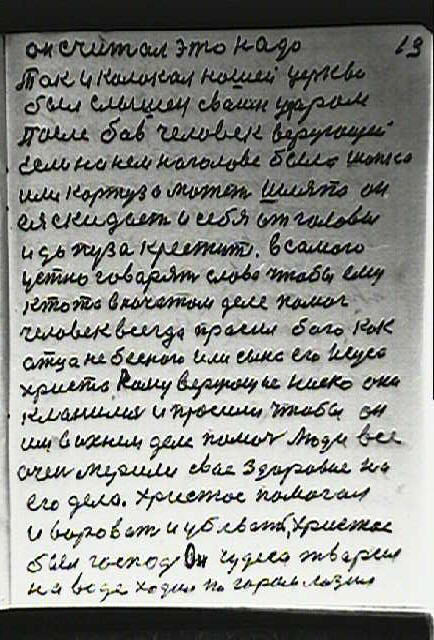 он считал это надо 19
Так и колокал нашей церкве
был слышен сваим ударом
После бов человек веруюущей
если на нем наголове была шапка
или картуз а может шляпа он
ея скидает и себя от головы
и до пуза крестит. в самого
устно говарят слова чтобы ему
кто то в начатом деле помог
человек всегда прасил бога как
отца небесного или сына его Исуса
христа Кому верующие ниско они
кланились и просили чтобы он
им в ихнем деле помог Люди все
очен мерили свае здоровие на
его дела. христос помогал
и вороват и убеват, христос
был господ Он чудеса тварил
на воде ходил по горам лазил